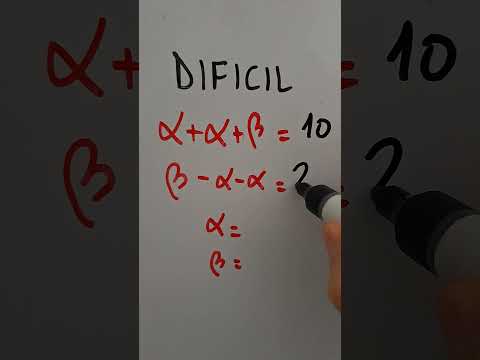 DIFICIL
α+α+β = 10
β - α - α = 2
α =
β =